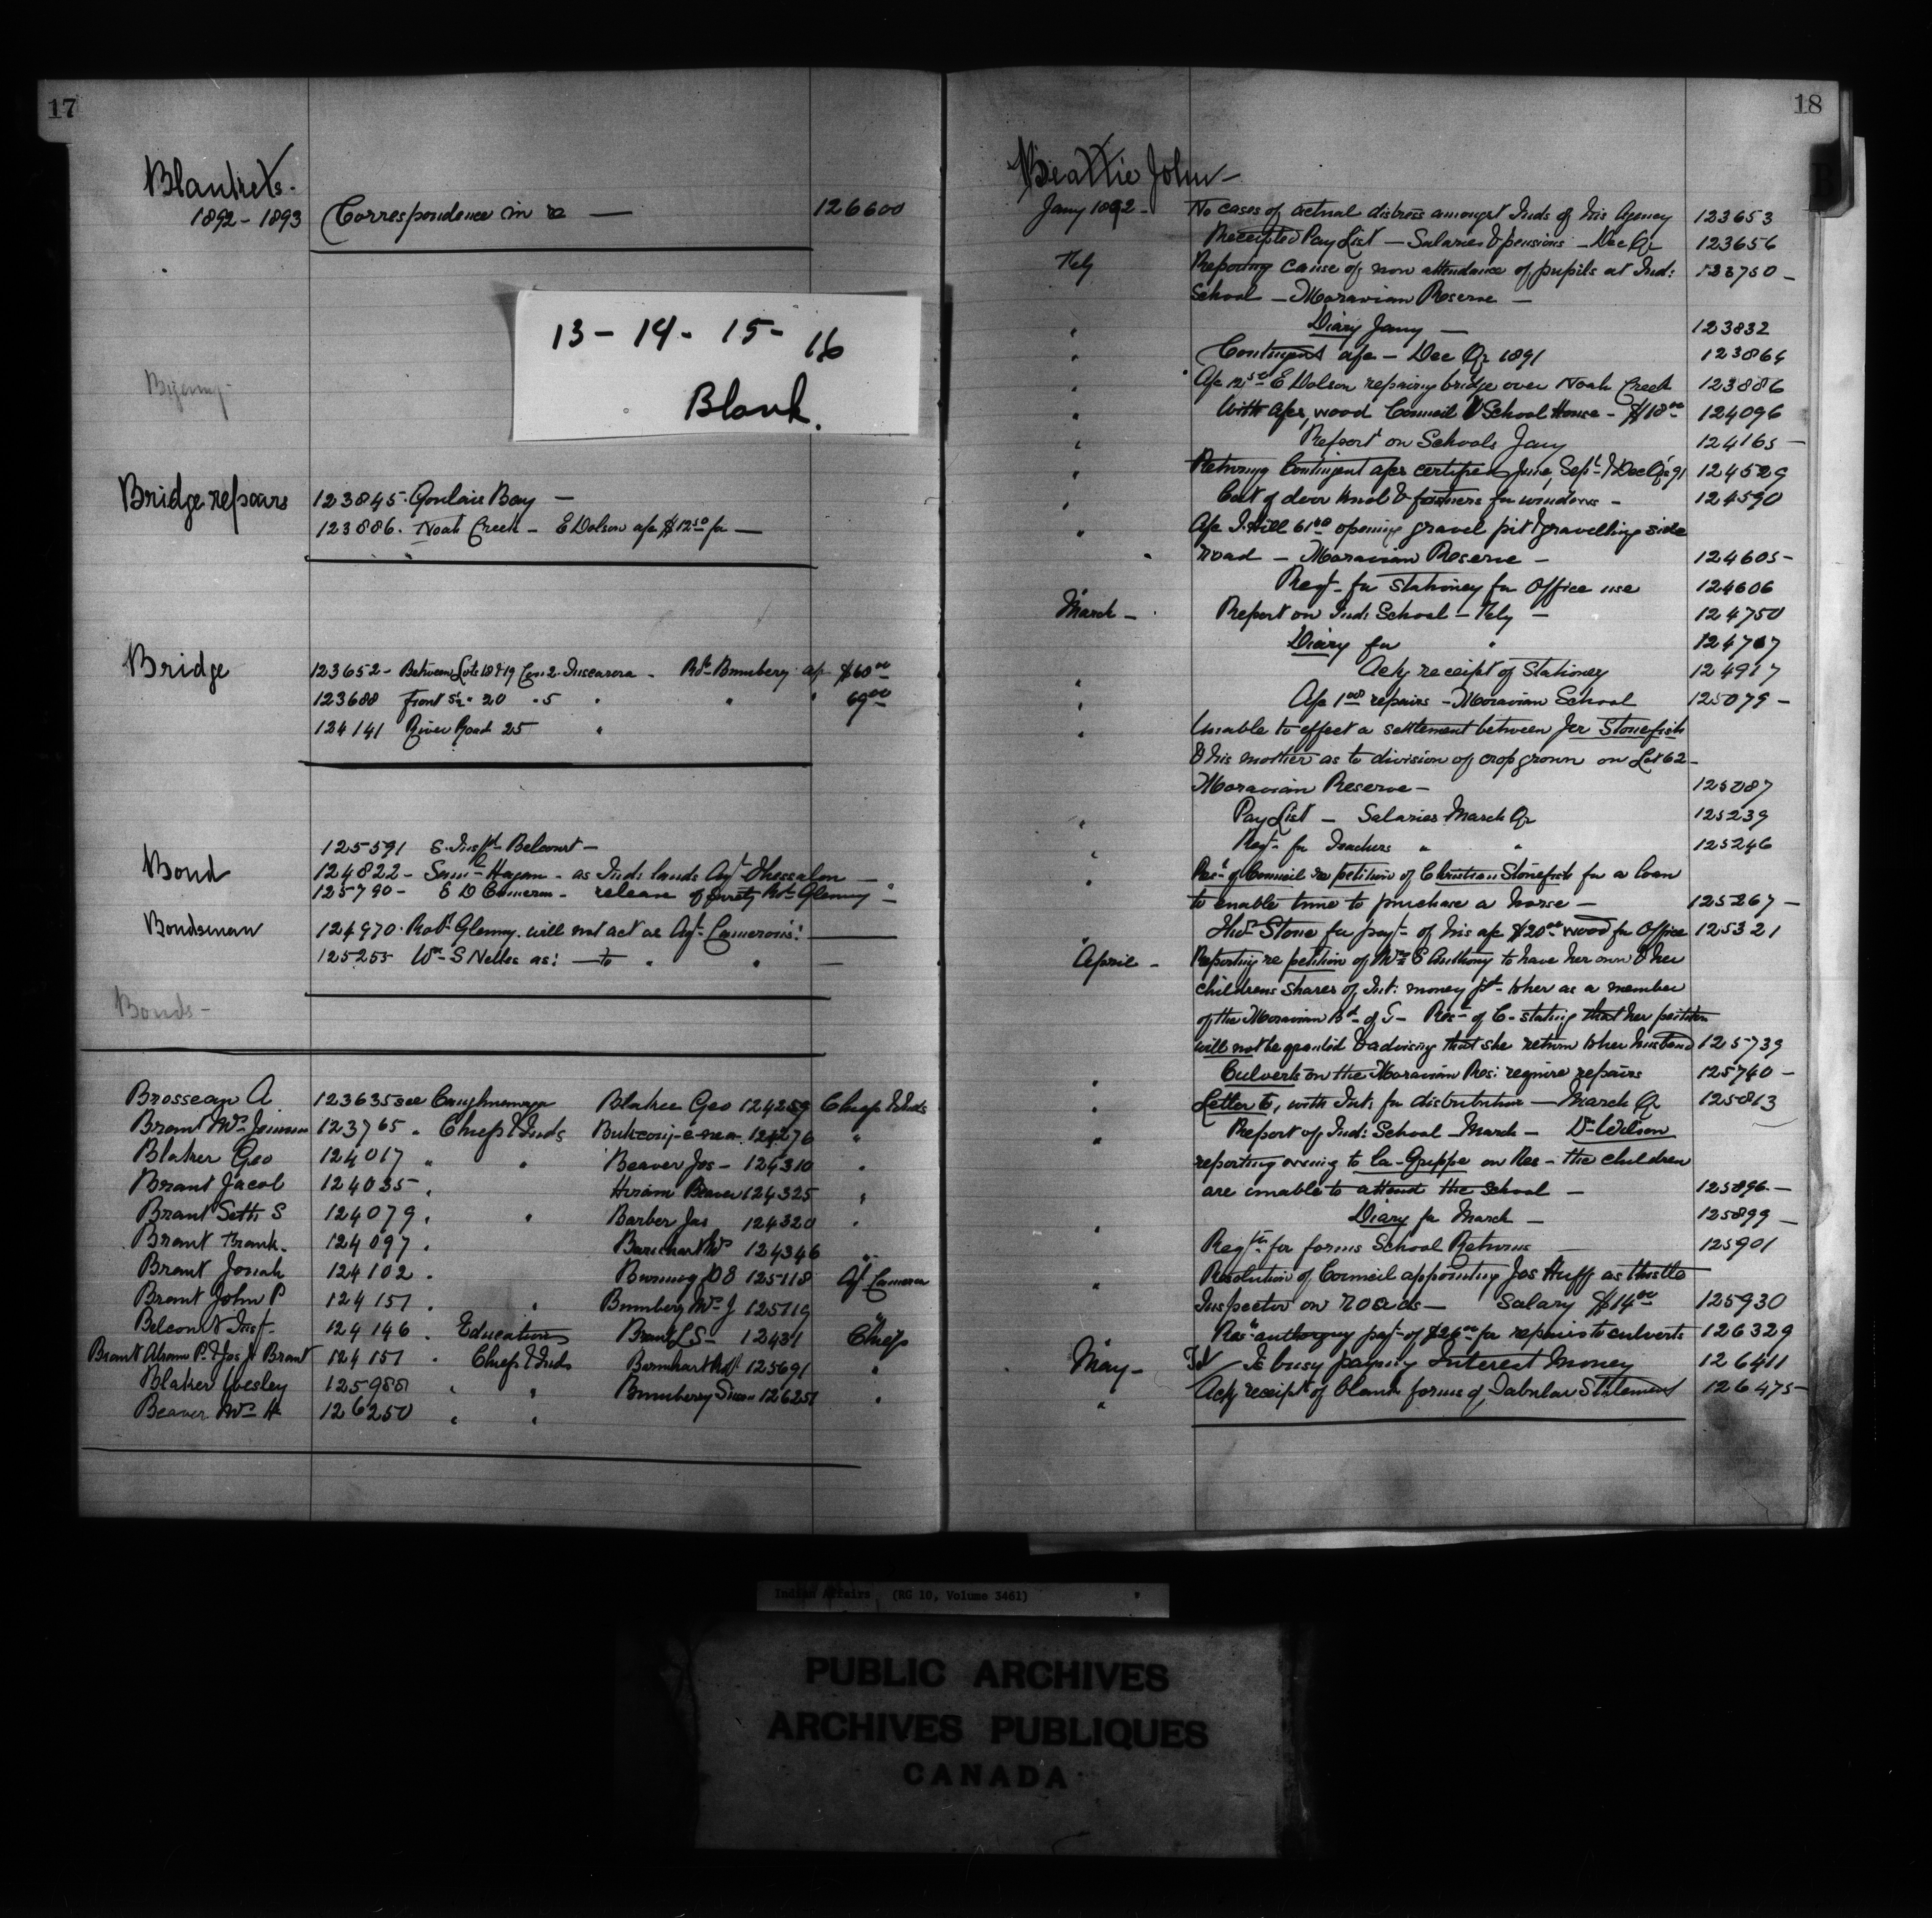 17
Blankets.
1892 - 1893 Correspondence in re — 126600
13 - 14 - 15 - 16
Blank.
Bridge repairs 123845. Goulais Bay —
123886. Noah Creek - E Dolson a/c $12.50 for —
Bridge 123652 - Between Lots 18 & 19 Con 2 Tuscarora - Bumbery a/c $60.00
123688 Front 5 " 20 " 5 " " " 69.00
124141 River Road 25 "
125591 S. Belcourt -
Bond 124822 - Hagan - as Ind: lands Agt Thessalon —
125790 - E D Cameron - release of surety Robt Glenny -
Bondsman 124970. Robt Glenny. will not act as Agt Cameron's: —
125255 Wm S Nelles as: — to " " —
Bonds -
Brosseau A 123635 see Caughnawaga Blaker Geo 124259 Chiefs & Inds
Brant Mrs 123765 " Chiefs & Inds 124276 "
Blaker Geo 124017 " " Beaver Jos - 124310 "
Brant Jacob 124035 " Hiram Beaver 124325 "
Brant Seth S 124079 " " Barber Jas 124320 "
Brant Frank. 124097 " 124346 "
Brant Jonah 124102 " Burning 125118 Agt Cameron
Brant John P 124151 " " Bumbery Mrs J 125119 "
Belcourt Inst. 124146 " Education Brant L S - 12431 Chiefs
Brant Abram P. & Jos J. Brant 124151 " Chiefs & Inds Barnhart 125691 "
Blaker Wesley 125988 " " Bumberry Simon 126251 "
Beaver Mrs H 126250 " "
18
Beattie John -
Jany 1892 - No cases of actual distress amongst Inds of his Agency 123653
Receipted Pay List — Salaries & pensions — Dec Qr 123656
Feby Reporting cause of non attendance of pupils at Ind: 123750 -
School — Moravian Reserve —
" Diary Jany — 123832
" Contingent a/c — Dec Qr 1891 123864
" A/c 12.50 E Dolson repairing bridge over Noah Creek 123886
" With a/cs, wood Council & School House - $18.00 124096
" Report on Schools Jany 124165 -
" Returning Contingent a/cs certified June, Sept & Dec Qr 91 124529
" Cost of door knob & fasteners for windows - 124590
" A/c J. Hill 61.00 opening gravel pit & gravelling side
road — Moravian Reserve — 124605 -
Reqt for stationery for Office use 124606
March - Report on Ind: School — Feby — 124750
Diary for " 124767
" Ack receipt of Stationery 124917
" A/c 1.00 repairs - Moravian School 125079 -
" Unable to effect a settlement between Jer Stonefish
& his mother as to division of crop grown on Lot 62 -
Moravian Reserve - 125087
" Pay List — Salaries March Qr 125239
" Reqt for Teachers " " 125246
" Resn of Council re petition of Christian Stonefish for a loan
to enable him to purchase a horse — 125267 -
" Thos Stone for payt of his a/c $20.00 wood for Office 125321
April - Reporting re petition of Mrs E Anthony to have her own & her
childrens shares of Int: money pd to her as a member
of the Moravian Bd of I - Resn of C - stating that her petition
will not be granted & advising that she return to her husband 125739
" Culverts on the Moravian Res: require repairs 125740 -
" Letter to, with Int: for distribution — March Qr 125813
" Report of Ind: School - March — Dr Wilson
reporting owing to La-Grippe on Res - the children
are unable to attend the School — 125896 -
" Diary for March — 125899 -
Reqtn for forms School Returns 125901
" Resolution of Council appointing Jos Huff as thistle
Inspector on roads — Salary $14.00 125930
Resn authorizing payt of $26.00 for repairs to culverts 126329
May - Is busy paying Interest Money 126411
" Ack receipt of blank forms of Tabular Statement 126475 -
Indian Affairs (RG 10, Volume 3461)
PUBLIC ARCHIVES
ARCHIVES PUBLIQUES
CANADA